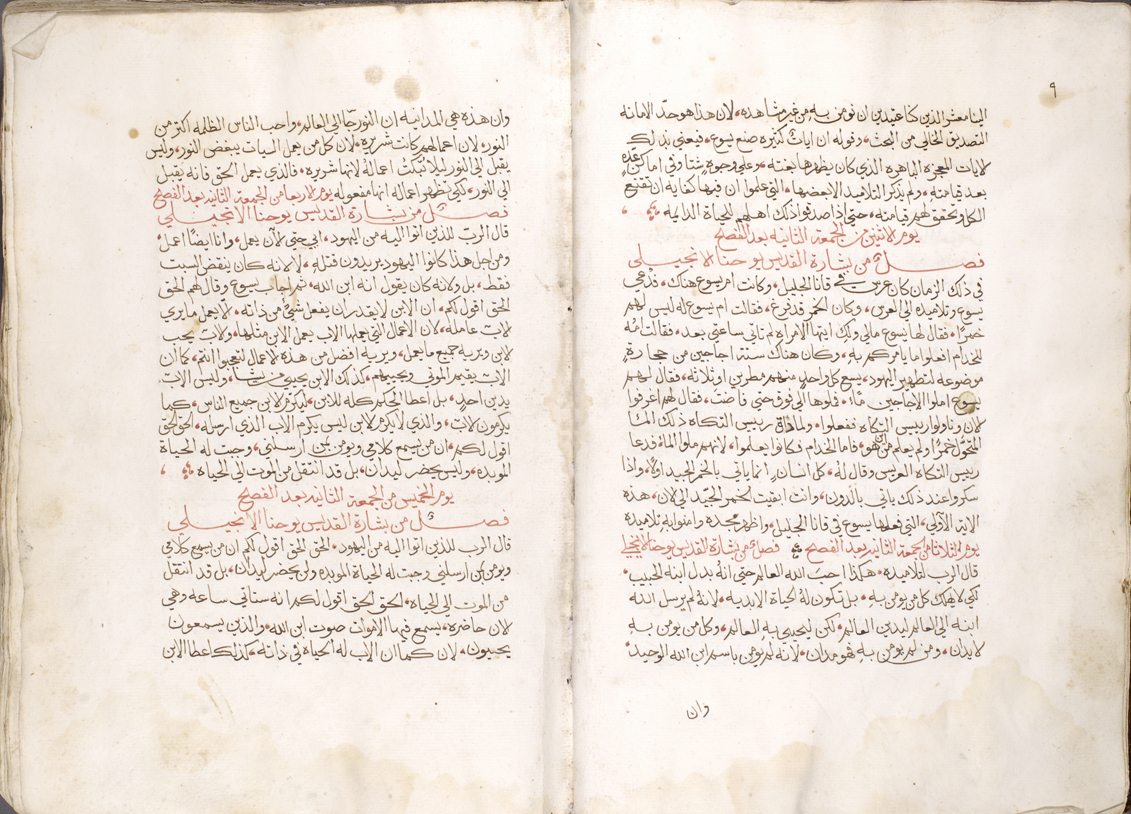 ٩
الينا معشر الذين كنا عتيدين ان نومن به من غير مشاهده، لان هذا هو حد الامانه
التصديق الخالي من البحث، وقوله ان ايات كثيره صنع يسوع، فيعني بذلك
لايات المعجزه الباهره الذي كان يظهرها بعته، وعلي وجوه شتا وفي اماكن عده
بعد قيامته، ولم يذكر التلاميد الا بعضها، التي علموا ان فيها كفايه ان تقنع
الكل وتحقق لهم قيامته، حتي اذا صدقوا ذلك اهلهم للحياة الدايمه
يوم لاثنين من الجمعة الثانيه بعد الفصح
فصل من بشارة القديس يوحنا لانجيلي
في ذلك الزمان كان عرس في قانا الجليل، وكانت ام يسوع هناك، فدعي
يسوع وتلاميذه الي العرس، وكان الخمر قد فرغ، فقالت ام يسوع له ليس لهم
خمرًا، فقال لها يسوع مالي ولك ايتها الامراه لم تاتي ساعتي بعد، فقالت امه
للخدام افعلوا ما يامركم به، وكان هناك ستة اجاجين من حجارة
موضوعه لتطهير اليهود، يسع كل واحد منهم مطرين او ثلاثه، فقال لهم
يسوع املوا الاجاجين ماء، فملوها الي فوق حتي فاضت، فقال لهم اغرفوا
لان وناولوا رييس التكاه ففعلوا، ولما ذاق رييس التكاه ذلك الما
المتحول خمرًا ولم يعلم من اين هو، فاما الخدام فكانوا يعلموا، لانهم ملوا الما، فدعا
رييس التكاه العريس وقال له، كل انسان انما ياتي بالخمر الجيد اولا، واذا
سكروا عند ذلك ياتي بالدون، وانت ابقيت الخمر الجيد الي لان، هذه
الايه الاولي، التي فعلها يسوع في قانا الجليل، واظهر مجده وامنوا به تلاميده
يوم الثلاثا من الجمعة الثانيه بعد الفصح فصل من بشارة القديس يوحنا لانجيلي
قال الرب لتلاميده، هكذا احب الله العالم حتي انه بدل ابنه الحبيب
لكي لا يهلك كل من يومن به، بل تكون له الحياة الابديه، لانه لم يرسل الله
ابنه الي العالم ليدين العالم، لكن ليحيي به العالم، وكل من يومن به
لا يدان، ومن لم يومن به فهو مدان، لانه لم يومن باسم ابن الله الوحيد
وان
وان هذه هي المداينه ان النور جا الي العالم، واحب الناس الظلمه اكثر من
النور، لان اعمالهم كانت شريره، لان كل من يعمل السيات يبغض النور، وليس
يقبل الي النور ليلا تبكت اعماله لانها شريره، فالذي يعمل الحق فانه يقبل
الي النور، لكي يظهر اعماله انها مفعوله يوم لاربعا من الجمعة الثانيه بعد الفصح
فصل من بشارة القديس يوحنا الانجيلي
قال الرب للذين اتوا اليه من اليهود، ابي حتي لان يعمل، وانا ايضًا اعمل
ومن اجل هذا كانوا اليهود يريدون قتله، لا لانه كان ينقض السبت
فقط، بل ولانه كان يقول انه ابن الله، ثم اجاب يسوع وقال لهم الحق
الحق اقول لكم، ان الابن لا يقدر ان يفعل شيء من ذاته، لا يعمل ما يري
لاب عامله، لان الاعمال التي يعملها الاب يعمل الابن مثلها، ولاب يحب
لابن ويريه جميع ما يعمل، ويريه افضل من هذه لاعمال لتعجبوا انتم، كما ان
الاب يقيم الموتي ويحييهم، كذلك الابن يحيي من يشا، وليس الاب
يدين احد، بل اعطا الحكم كله للابن، ليكرم لابن جميع الناس، كما
يكرمون لاب، والذي لا يكرم لابن ليس يكرم الاب الذي ارسله، الحق الحق
اقول لكم، ان من يسمع كلامي ويومن بمن ارسلني، وجبت له الحياة
الموبده، وليس يحضر ليدان، بل قد انتقل من الموت الي الحياه
يوم الخميس من الجمعة الثانيه بعد الفصح
فصل من بشارة القديس يوحنا الانجيلي
قال الرب للذين اتوا اليه من اليهود، الحق الحق اقول لكم ان من يسمع كلامي
ويومن بمن ارسلني وجبت له الحياة الموبده ولن يحضر ليدان، بل قد انتقل
من الموت الي الحياة، الحق الحق اقول لكم انه ستاتي ساعه وهي
لان حاضره، يسمع فيها الاموات صوت ابن الله، والذين يسمعون
يحييون، لان كما ان الاب له الحياة في ذاته، كذلك اعطا الابن